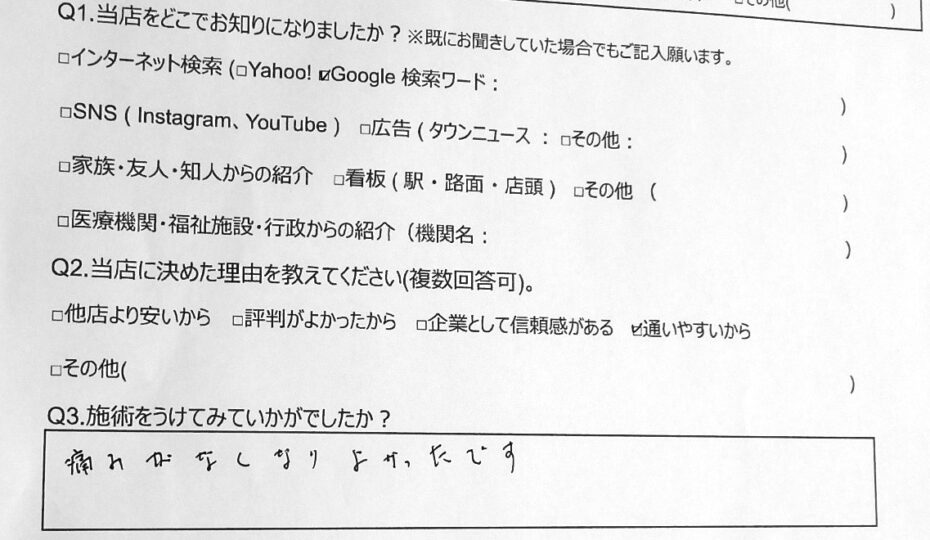 □その他( )
Q1.当店をどこでお知りになりましたか？※既にお聞きしていた場合でもご記入願います。
□インターネット検索 (□Yahoo! ☑Google 検索ワード： )
□SNS ( Instagram、YouTube ) □広告 ( タウンニュース ： □その他： )
□家族・友人・知人からの紹介 □看板 ( 駅・路面・店頭 ) □その他 ( )
□医療機関・福祉施設・行政からの紹介 (機関名： )
Q2.当店に決めた理由を教えてください(複数回答可)。
□他店より安いから □評判がよかったから □企業として信頼感がある ☑通いやすいから
□その他( )
Q3.施術をうけてみていかがでしたか？
痛みがなくなりよかったです